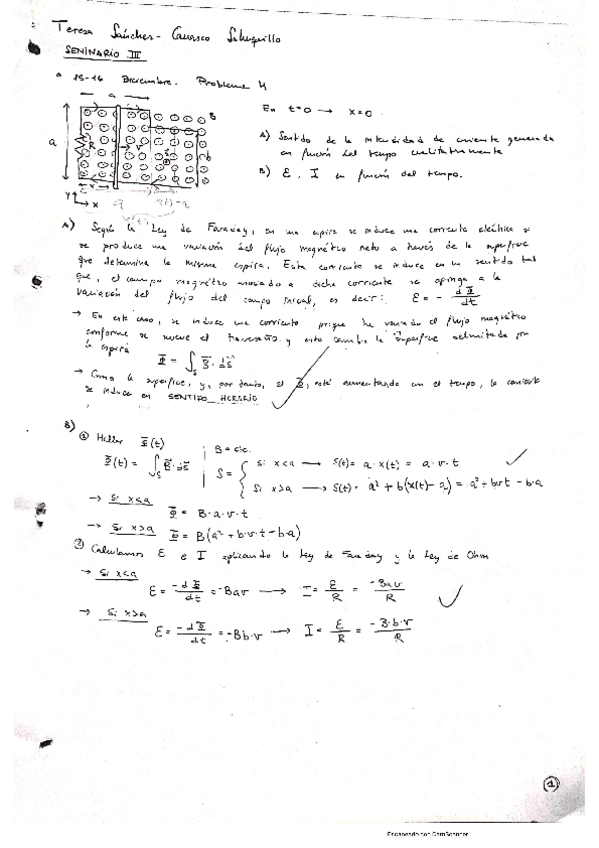 Teresa Sánchez-Carrasco
SEMINARIO III
• 15-16 Diciembre. Problema 4
a
B
En t=0 → x=0
a
R
v
b
A) Sentido de la intensidad de corriente generada
en función del tiempo cualitativamente
B) ε, I en función del tiempo.
x
y
x
A) Según la Ley de Faraday, en una espira se induce una corriente eléctrica si
se produce una variación del flujo magnético neto a través de la superficie
que determina la misma espira. Esta corriente se induce en un sentido tal
que, el campo magnético asociado a dicha corriente se oponga a la
variación del flujo del campo inicial, es decir: ε = - dΦ/dt
→ En este caso, se induce una corriente porque ha variado el flujo magnético
conforme se mueve el travesaño y esto cambia la superficie delimitada por
la espira
Φ = ∫s B · ds
→ Como la superficie, y, por tanto, el Φ, está aumentando con el tiempo, la corriente
se induce en SENTIDO HORARIO
B)
① Hallar Φ(t)
B = cte.
Φ(t) = ∫s B · ds
S = { Si x<a → S(t) = a · x(t) = a · v · t
Si x>a → S(t) = a² + b(x(t) - a) = a² + bvt - b·a
→ Si x<a Φ = B·a·v·t
→ Si x>a Φ = B(a² + b·v·t - b·a)
② Calculamos ε e I aplicando la Ley de Faraday y la Ley de Ohm
→ Si x<a
ε = -dΦ/dt = -Bav → I = ε/R = -Bav/R
→ Si x>a
ε = -dΦ/dt = -Bb·v → I = ε/R = -B·b·v/R
①
Escaneado con CamScanner